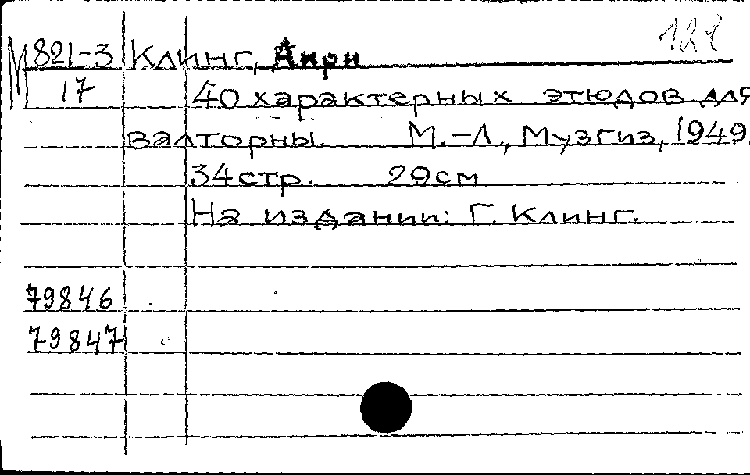 М 821-3 Клинг, Анри
17 40 характерных этюдов для
валторны. М.-Л., Музгиз, 1949.
34 стр. 29 см
На издании: Г. Клинг.
79846
79847